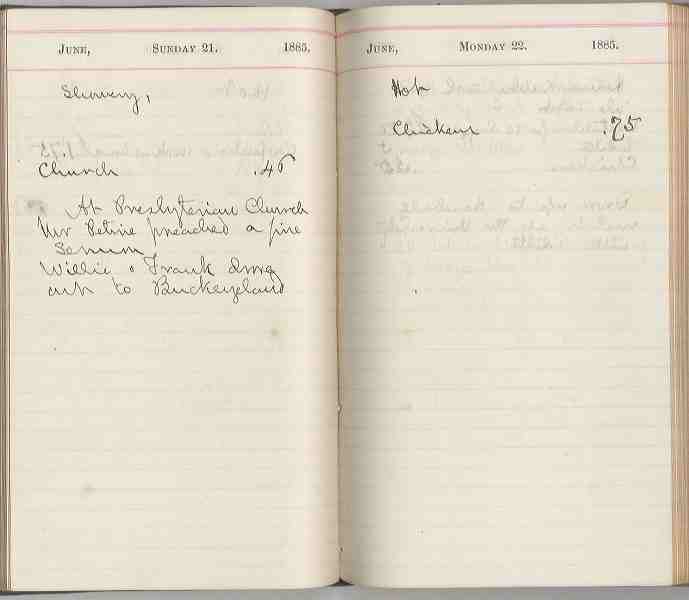 JUNE, SUNDAY 21. 1885.
Showery,
S.S.
Church .45
At Presbyterian Church
Mr Petrie preached a fine
Sermon
Willie & Frank drove
out to Buckeyeland
JUNE, MONDAY 22. 1885.
Hot
Chickens .75